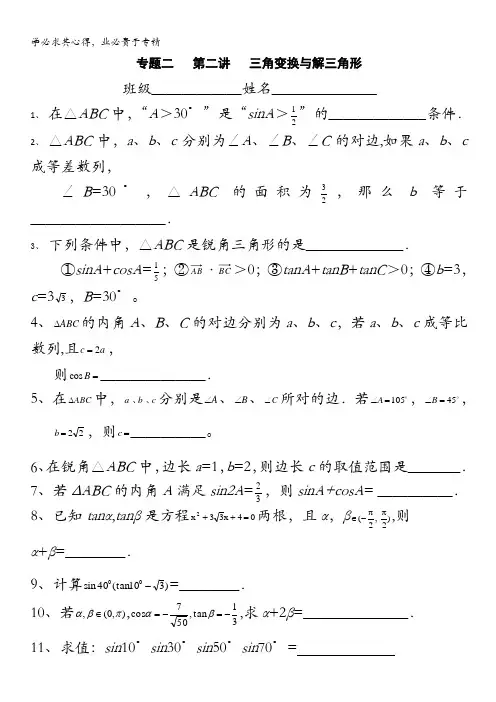 学必求其心得，业必贵于专精
专题二 第二讲 三角变换与解三角形
班级____________姓名______________
1、在△ABC中，“A＞30°”是“sinA＞1/2”的_____________条件．
2、△ABC中，a、b、c分别为∠A、∠B、∠C的对边,如果a、b、c
成等差数列，
∠B=30°，△ABC的面积为3/2，那么b等于
__________________．
3、下列条件中，△ABC是锐角三角形的是_____________．
①sinA+cosA=1/5；②AB·BC＞0；③tanA+tanB+tanC＞0；④b=3，
c=3√3，B=30°。
4、△ABC的内角A、B、C的对边分别为a、b、c，若a、b、c成等比
数列,且c=2a，
则cosB=______________．
5、在△ABC中，a、b、c分别是∠A、∠B、∠C所对的边．若∠A=105°，∠B=45°，
b=2√2，则c=__________。
6、在锐角△ABC中,边长a=1，b=2，则边长c的取值范围是_______．
7、若ΔABC的内角A满足sin2A=2/3，则sinA+cosA= __________．
8、已知tanα,tanβ是方程x²+3√3x+4=0两根，且α，β∈(-π/2, π/2),则
α+β=________．
9、计算sin40⁰(tan10⁰-√3)=________．
10、若α,β∈(0,π),cosα=-7/√50,tanβ=-1/3,求α+2β=______________．
11、求值：sin10°sin30°sin50°sin70°=_____________